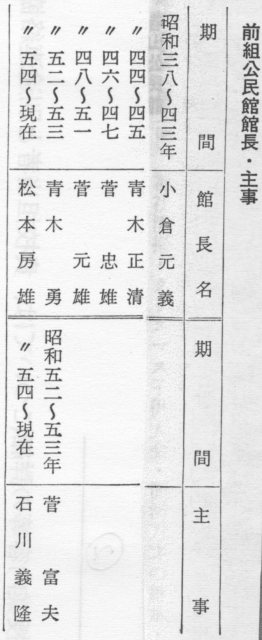 前組公民館館長・主事
期間 館長名 期間 主事
昭和三八〜四三年 小倉元義
〃 四四〜四五 青木正清
〃 四六〜四七 菅忠雄
〃 四八〜五一 菅元雄
〃 五二〜五三 青木勇 昭和五二〜五三年 菅富夫
〃 五四〜現在 松本房雄 〃 五四〜現在 石川義隆